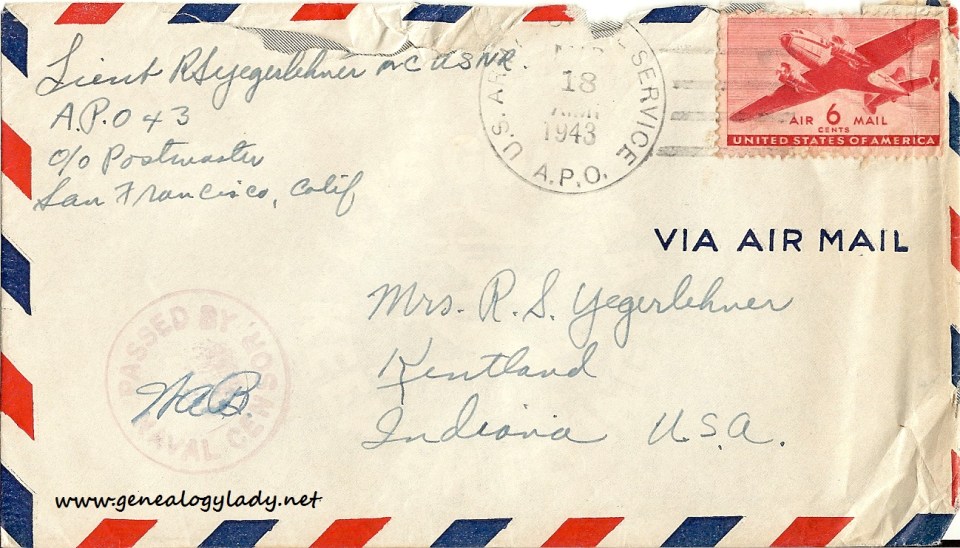 Lieut RSYegerlehner MC USNR.
A.P.O 43
c/o Postmaster
San Francisco, Calif
U.S. ARMY SERVICE
18
1943
A.P.O.
AIR 6 MAIL
CENTS
UNITED STATES OF AMERICA
VIA AIR MAIL
Mrs. R. S. Yegerlehner
Kentland
Indiana U.S.A.
PASSED BY
NAVAL CENSOR
www.genealogylady.net